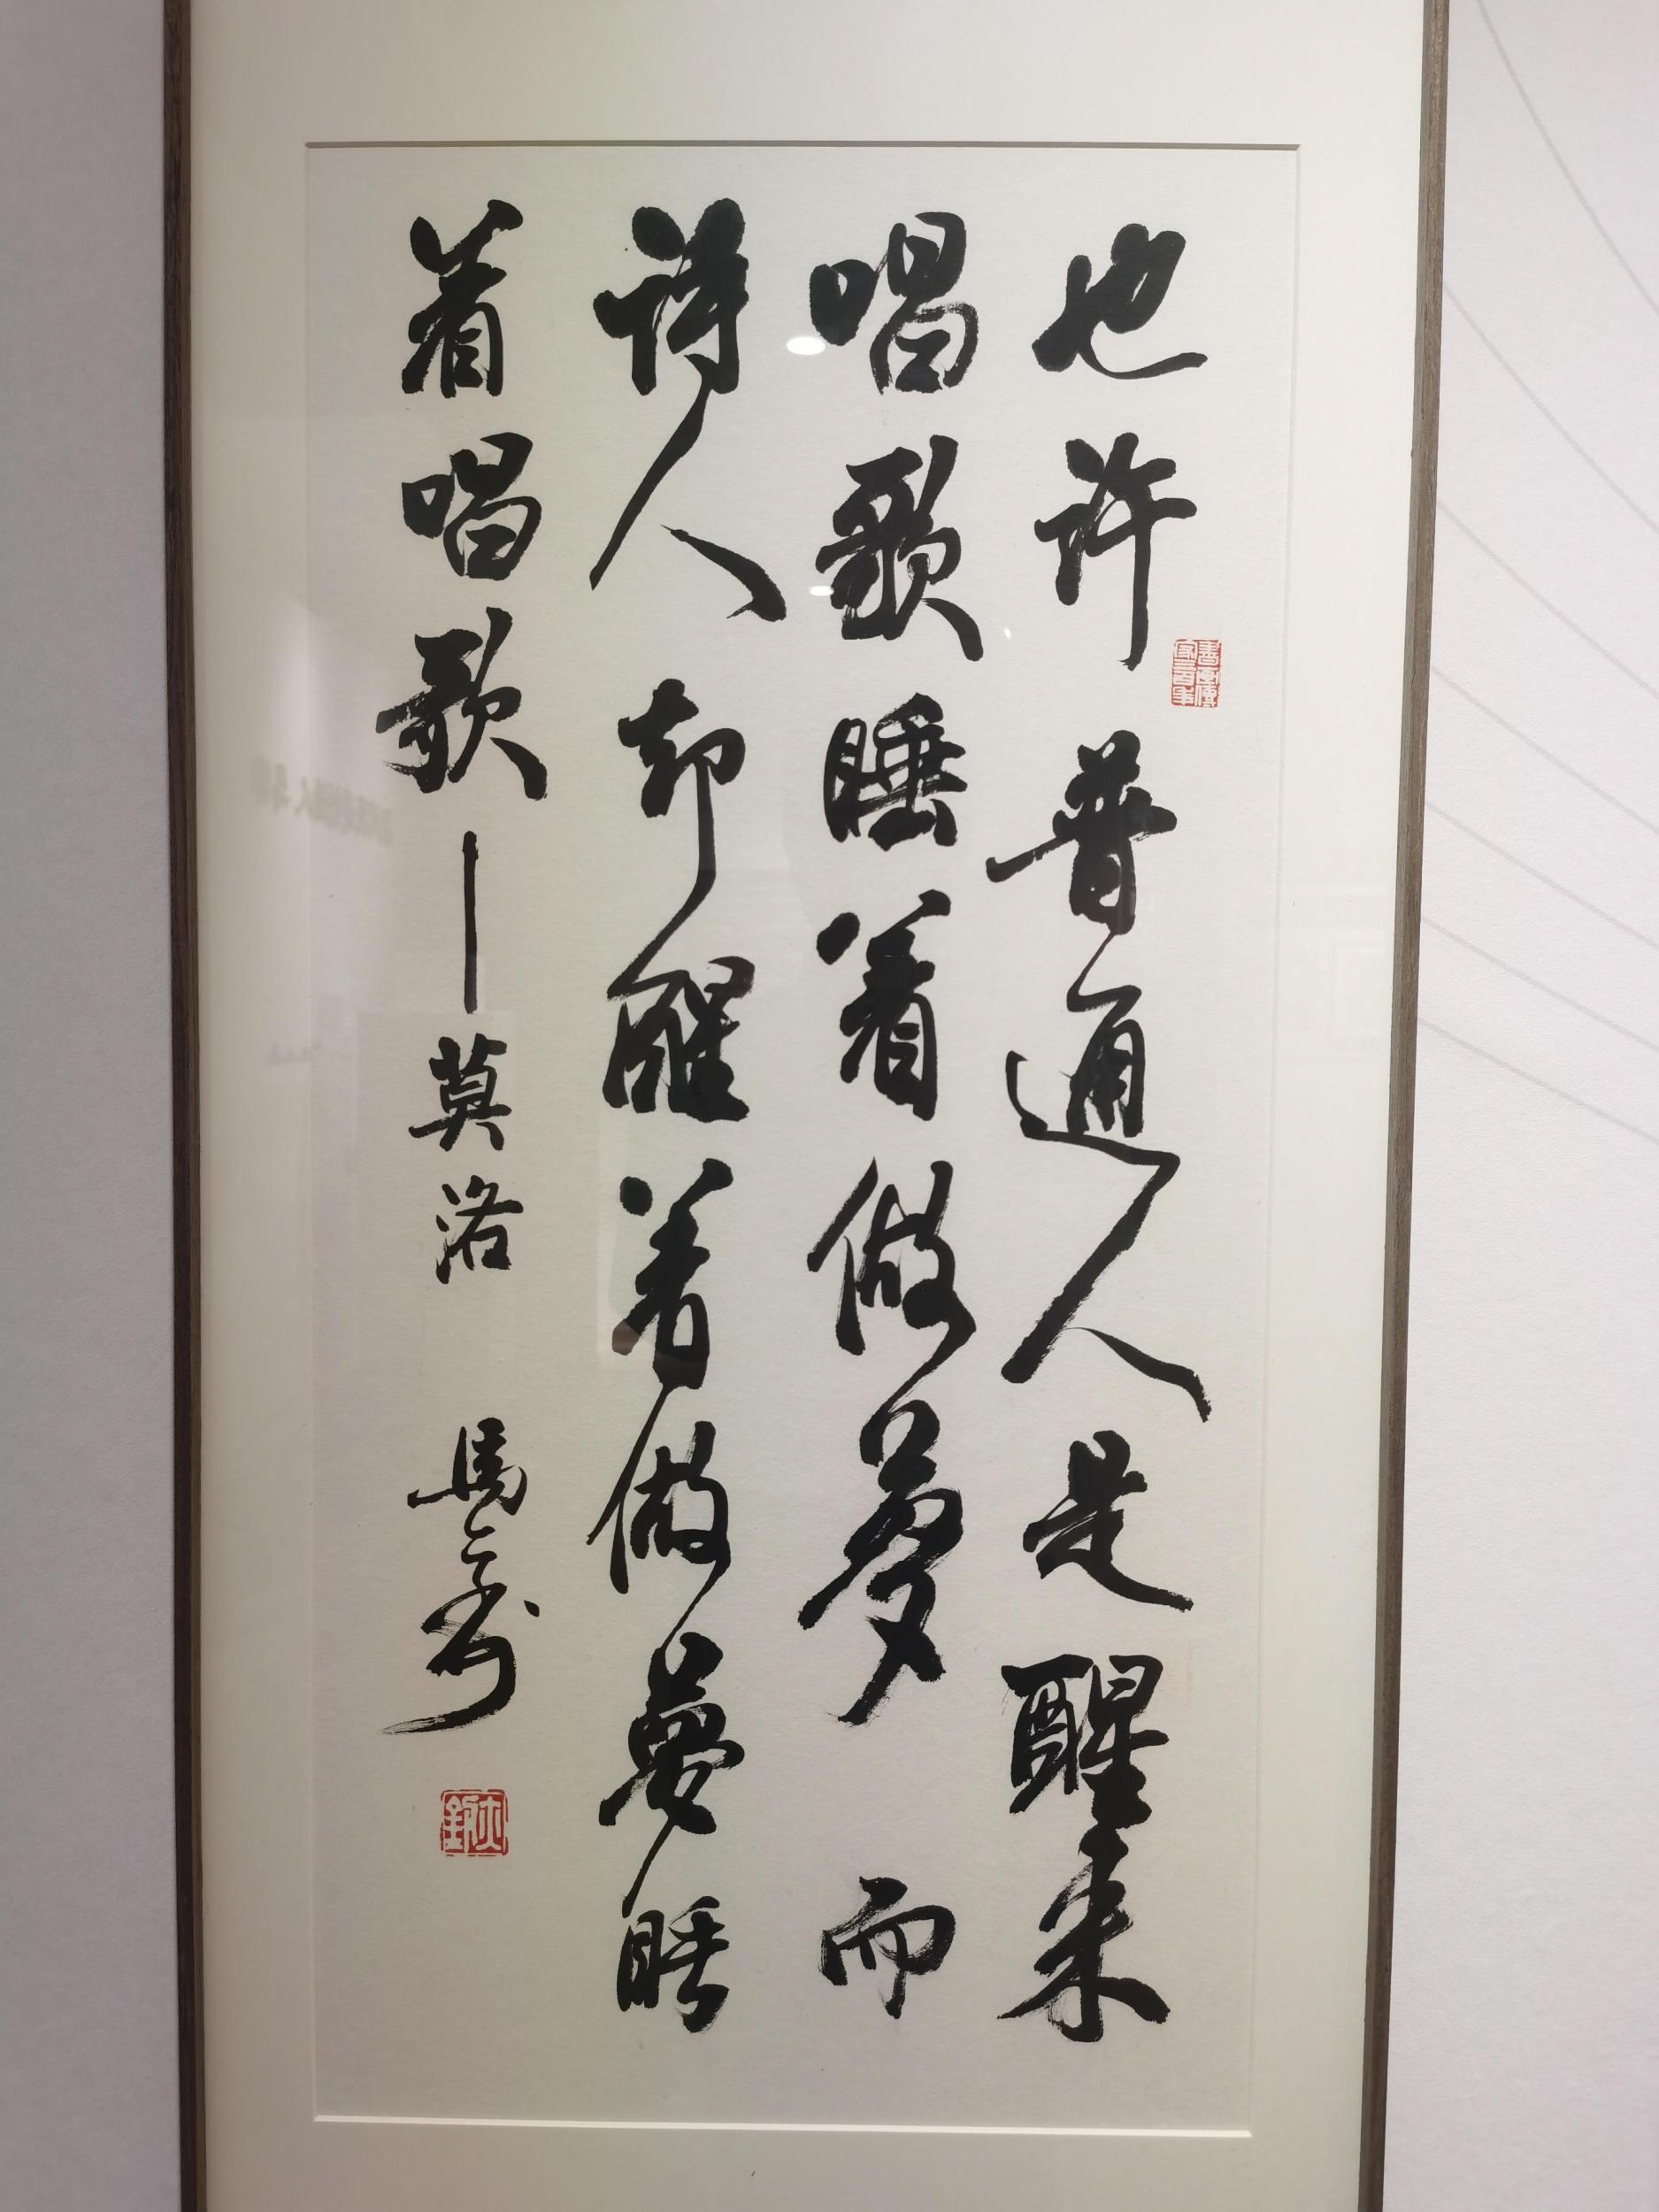 也许普通人是醒来
唱歌睡着做夢而
詩人却醒着做夢睡
着唱歌—莫洛
馬